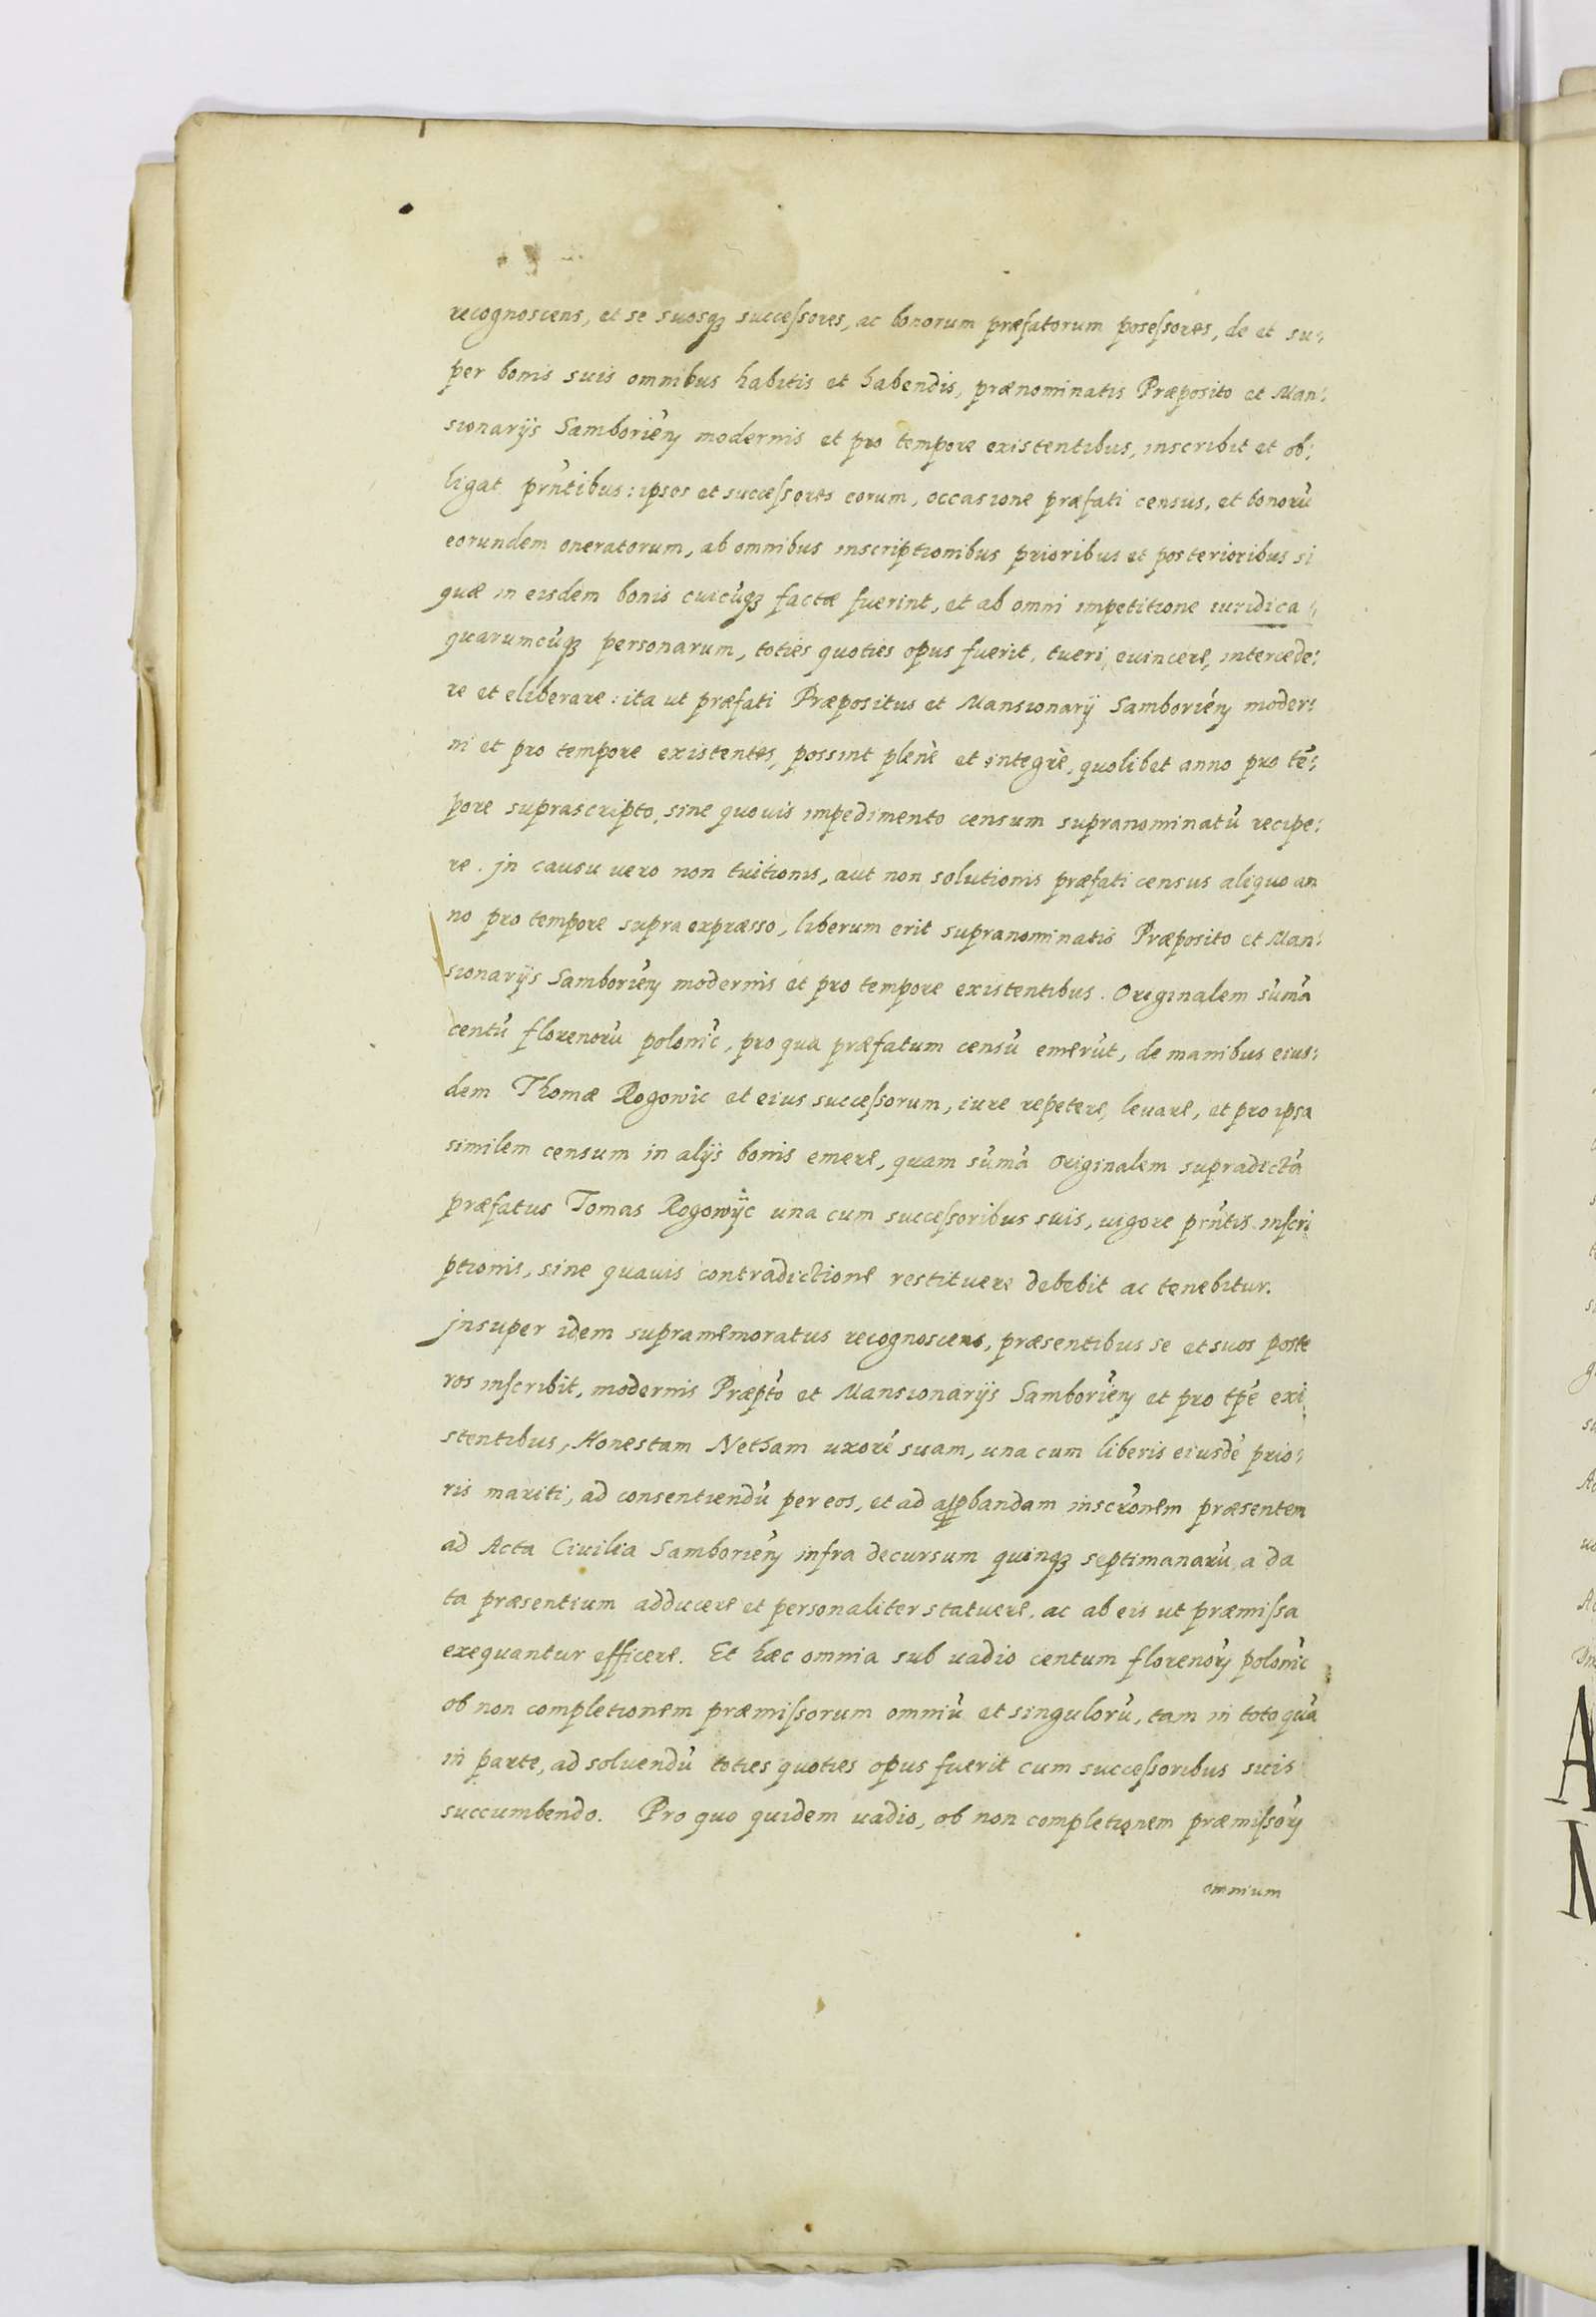 recognoscens, et se suosqꝫ succeſsores, ac bonorum præfatorum poseſsores, de et su:
per bonis suis omnibus habitis et habendis, prænominatis Præposito et Man:
sionarijs Samborien̄ modernis et pro tempore existentibus, inscribit et ob:
ligat prn̄tibus: ipsos et succeſsores eorum, occasione præfati census, et bonorū
eorundem oneratorum, ab omnibus inscriptionibus prioribus et posterioribus si
quæ in eisdem bonis cuicūqꝫ factæ fuerint, et ab omni impetitione iuridica
quarumcūqꝫ personarum, toties quoties opus fuerit, tueri, euincere, intercede:
re et eliberare: ita ut præfati Præpositus et Mansionarij Samborien̄ moder:
ni et pro tempore existentes, possint plenè et integrè, quolibet anno pro tē:
pore suprascripto, sine quouis impedimento censum supranominatū recipe:
re. jn causu uero non tuitionis, aut non solutionis præfati census aliquo an
no pro tempore supra expræsso, liberum erit supranominatis Præposito et Man:
sionarijs Samborien̄ modernis et pro tempore existentibus. Originalem sum̄ā
centū florenorū polonic̄, pro qua præfatum censū emerūt, de manibus eius:
dem Thomæ Rogowic et eius succeſsorum, iure repetere, leuare, et pro ipsa
similem censum in alijs bonis emere, quam sum̄ā Originalem supradictā
præfatus Tomas Rogowijc una cum succeſsoribus suis, uigore prn̄tis inſcri
ptionis, sine quauis contradictione restituere debebit ac tenebitur.
jnsuper idem supramemoratus recognoscens, præsentibus se et suos poste
ros inſcribit, modernis Præptō et Mansionarijs Samborien̄ et pro tp̄e exi
stentibus, Honestam Netham uxorē suam, una cum liberis eiusdē prio:
ris mariti, ad consentiendū per eos, et ad apꝓbandam inscrōnem præsentem
ad Acta Ciuilia Samborien̄ infra decursum quinqꝫ septimanarū, a da
ta præsentium adducere et personaliter statuere, ac ab eis ut præmiſsa
exequantur efficere. Et hæc omnia sub uadio centum florenorꝫ polonic̄
ob non completionem præmiſsorum omniū et singulorū, tam in toto quā
in parte, ad soluendū toties quoties opus fuerit cum succeſsoribus suis
succumbendo. Pro quo quidem uadio, ob non completionem præmiſsorꝫ
omnium